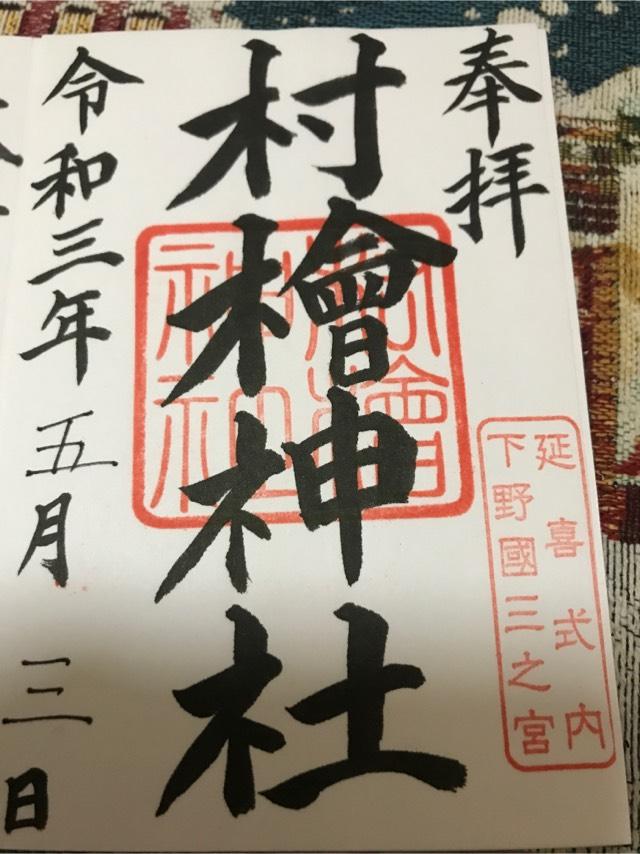 奉拝
延喜式内
下野國三之宮
村檜神社
村檜神社
令和三年五月三日